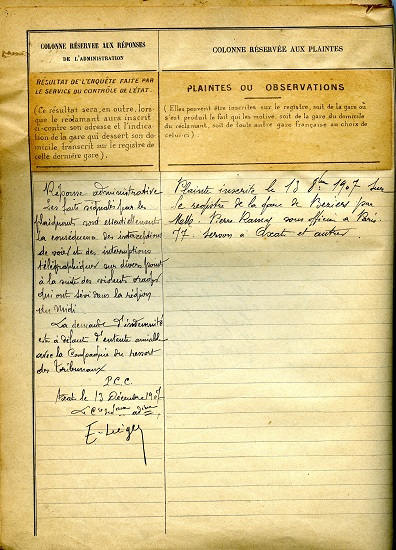 COLONNE RÉSERVÉE AUX RÉPONSES
DE L'ADMINISTRATION
RÉSULTAT DE L'ENQUÊTE FAITE PAR
LE SERVICE DU CONTRÔLE DE L'ÉTAT.
(Ce résultat sera, en outre, lors-
que le réclamant aura inscrit
ci-contre son adresse et l'indica-
tion de la gare qui dessert son
domicile, transcrit sur le registre de
celle dernière gare).
Réponse administrative
Les faits signalés par les
plaignants sont
la conséquence des interceptions
de voie et des interruptions
télégraphiques sur divers points
à la suite des violents orages
qui ont sévi dans la région
du Midi
La demande d'indemnité
est à défaut d'entente amiable
avec la Compagnie du ressort
des tribunaux
P.C.C.
Axat le 13 Décembre 1907
COLONNE RÉSERVÉE AUX PLAINTES
PLAINTES OU OBSERVATIONS
(Elles peuvent être inscrites sur le registre, soit de la gare où
s'est produit le fait qui les motive, soit de la gare du domicile
du réclamant, soit de toute autre gare française au choix de
celui-ci).
Plainte inscrite le 13 1907 sur
le registre de la gare de Beziers par
Pierre sous officier à Paris
77. à Axat et autres